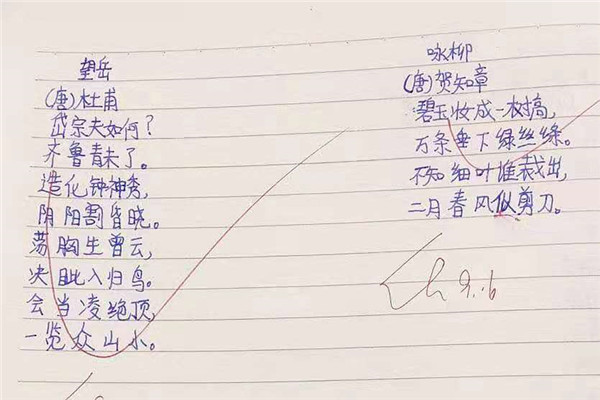 望岳
(唐)杜甫
岱宗夫如何?
齐鲁青未了。
造化钟神秀,
阴阳割昏晓。
荡胸生曾云,
决眦入归鸟。
会当凌绝顶,
一览众山小。
咏柳
(唐)贺知章
碧玉妆成一树搞,
万条垂下绿丝绦。
不知细叶谁裁出,
二月春风似剪刀。
9.6